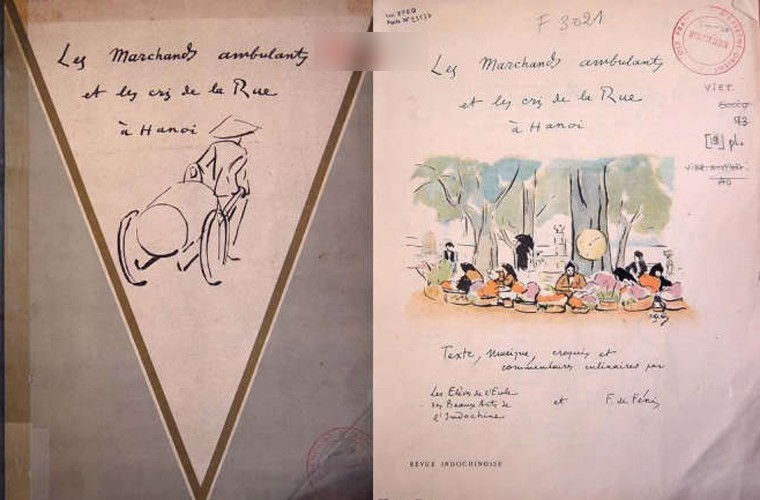 Les Marchands ambulants
et les cris de la Rue
à Hanoi
F 3021
Les Marchands ambulants
et les cris de la Rue
à Hanoi
VIET.
93
pl.
Texte, musique, croquis et
commentaires culinaires par
Les Elèves de l'Ecole
des Beaux Arts de
l'Indochine
et F. de Fénis
REVUE INDOCHINOISE